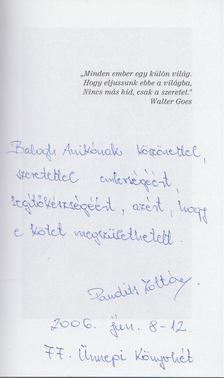 „Minden ember egy külön világ.
Hogy eljussunk ebbe a világba,
Nincs más híd, csak a szeretet."
Walter Goes
Balogh Anikónak köszönettel,
szeretettel emberségéért,
segítőkészségéért, azért, hogy
e kötet megszülethetett.
Pandits Zoltán
2006. jún. 8-12.
77. Ünnepi Könyvhét